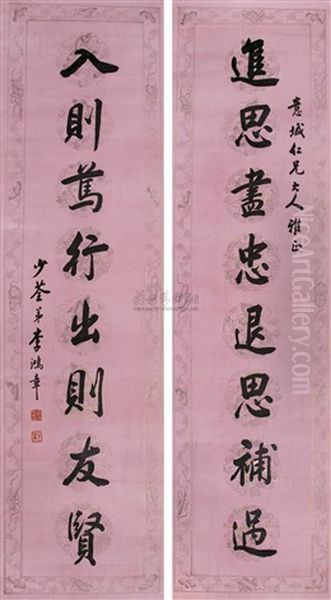 意城仁兄大人雅正
進思盡忠退思補過
入則篤行出則友賢
少荃弟李鴻章